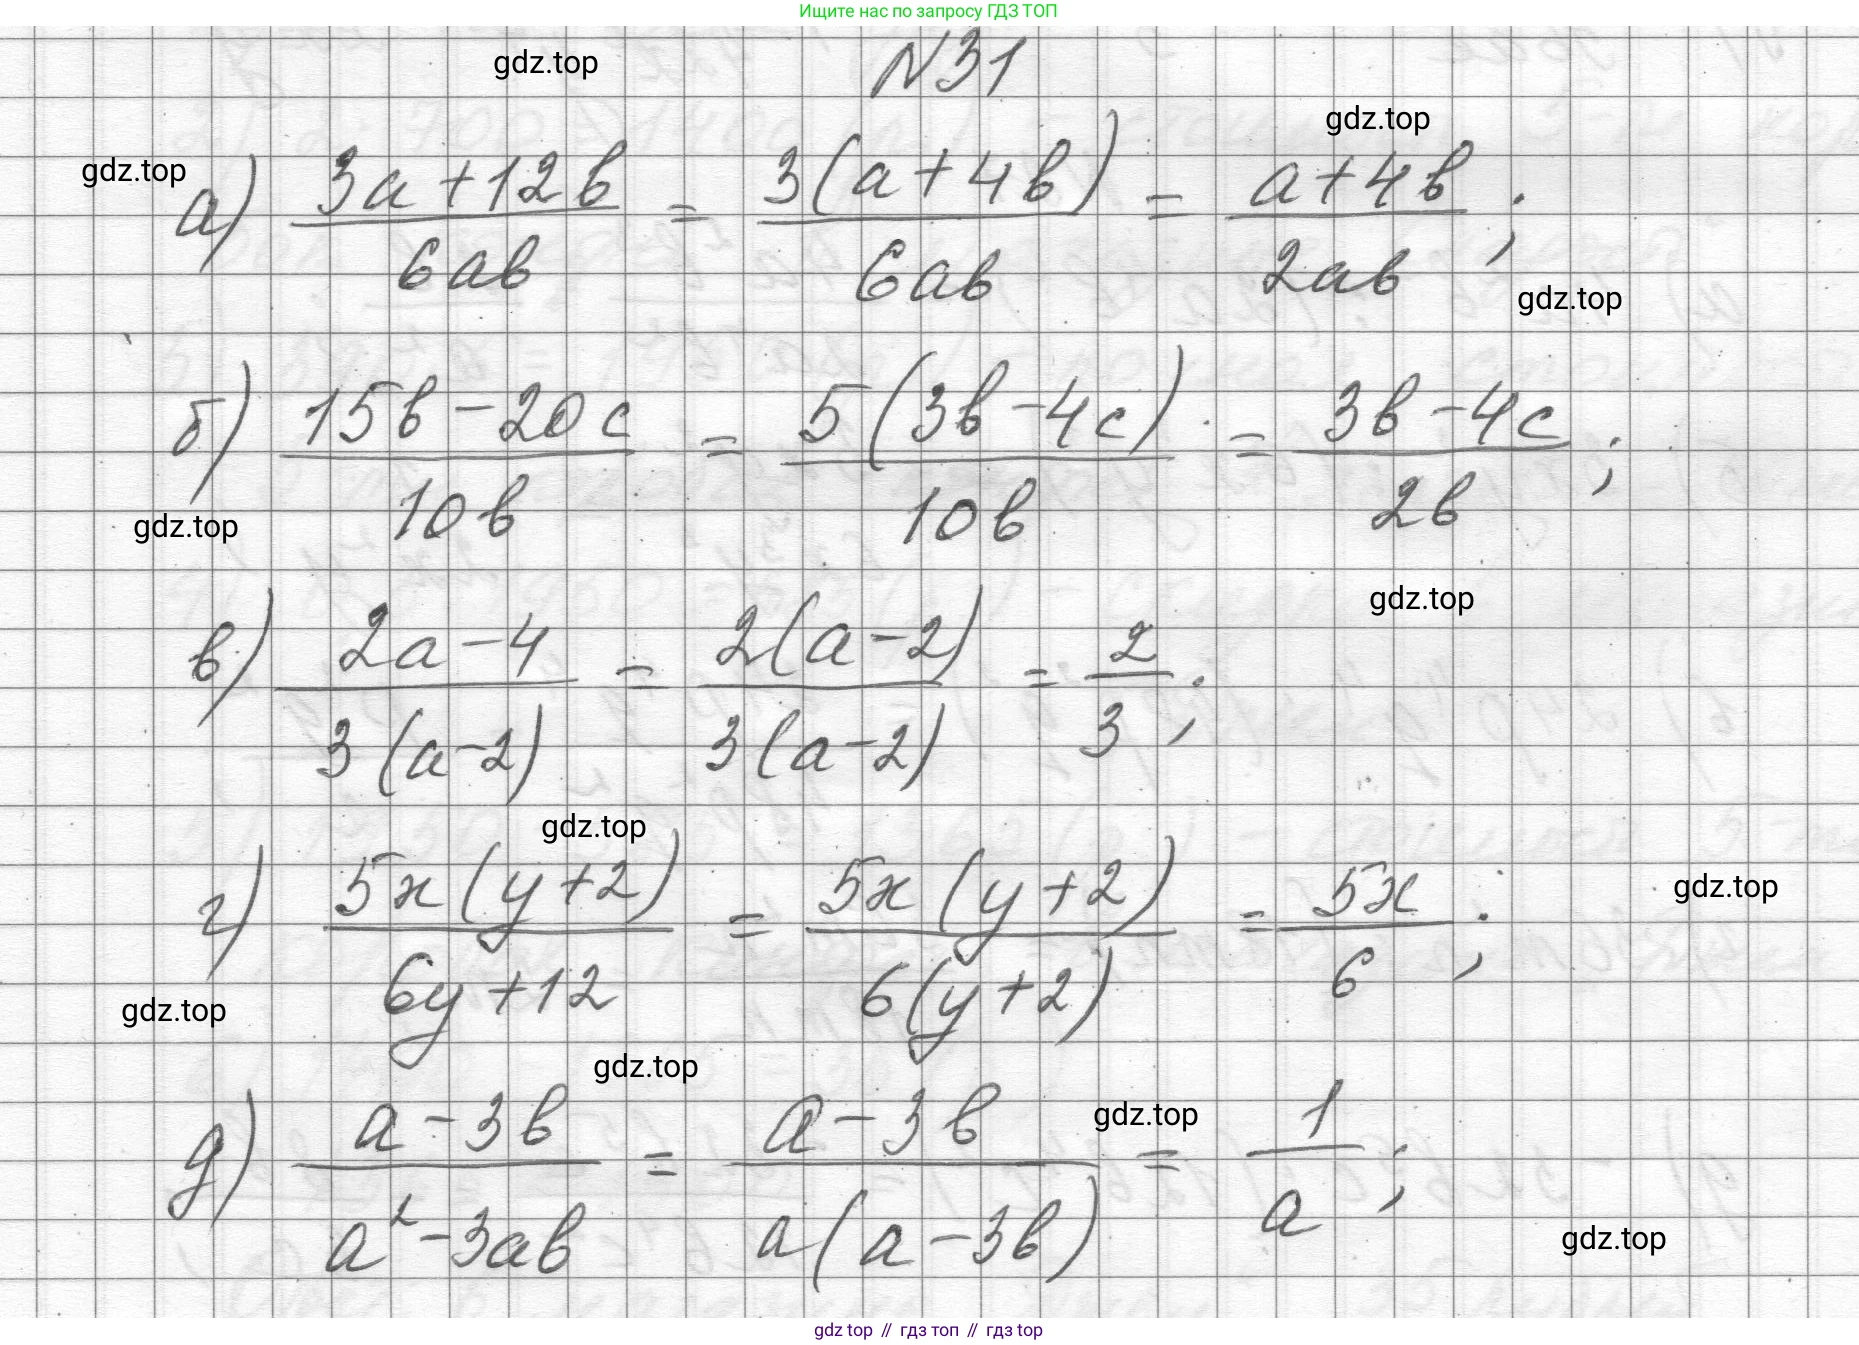 Ищите нас по запросу ГДЗ ТОП
gdz.top
N31
gdz.top
gdz.top
а) (3a+12b)/(6ab) = (3(a+4b))/(6ab) = (a+4b)/(2ab);
gdz.top
б) (15b-20c)/(10b) = (5(3b-4c))/(10b) = (3b-4c)/(2b);
gdz.top
gdz.top
в) (2a-4)/(3(a-2)) = (2(a-2))/(3(a-2)) = 2/3;
gdz.top
г) (5x(y+2))/(6y+12) = (5x(y+2))/(6(y+2)) = 5x/6;
gdz.top
gdz.top
gdz.top
gdz.top
д) (a-3b)/(a²-3ab) = (a-3b)/(a(a-3b)) = 1/a;
gdz.top
gdz top // гдз топ // гдз top